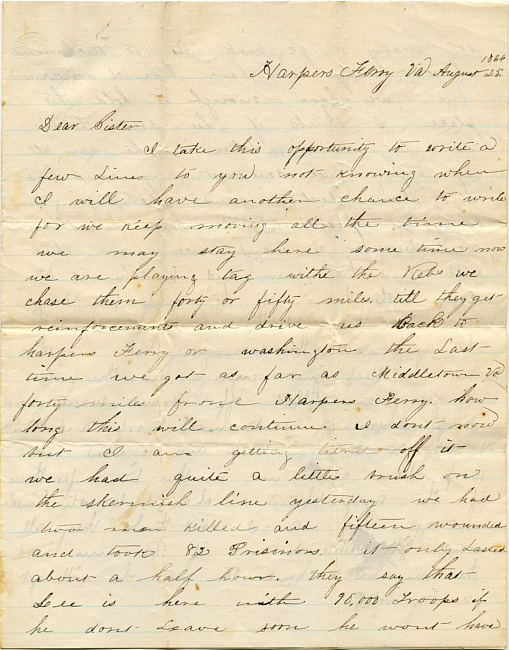 1864
Harpers Ferry Va August 25.
Dear Sister
I take this opportunity to write a
few Lines to you not knowing when
I will have another chance to write
for we keep moving all the time
we may stay here some time now
we are playing tag withe the Rebs we
chase them forty or fifty miles. till they get
reinforcements and drive us back to
harpers Ferry or washington the Last
time we got as far as Middletown Va
forty miles from Harpers Ferry. how
long this will continue I dont now
but I am getting tired off it
we had quite a little brush on
the skermish line yesterday we had
two men killed and fifteen wounded
and took 82 Prisinors. it only Lasted
about a half hour. they say that
Lee is here with 90,000 Troops if
he dont Leave soon he wont have